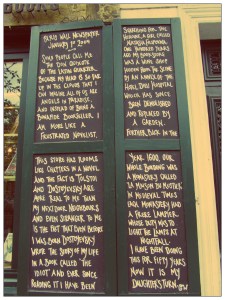 PARIS WALL NEWSPAPER
JANUARY 1ST 2004
SOME PEOPLE CALL ME
THE DON QUIXOTE
OF THE LATIN QUARTER
BECAUSE MY HEAD IS SO FAR
UP IN THE CLOUDS THAT I
CAN IMAGINE ALL OF US ARE
ANGELS IN PARADISE.
AND INSTEAD OF BEING A
BONAFIDE BOOKSELLER I
AM MORE LIKE A
FRUSTRATED NOVELIST.
THIS STORE HAS ROOMS
LIKE CHAPTERS IN A NOVEL
AND THE FACT IS TOLSTOI
AND DOSTOYEVSKI ARE
MORE REAL TO ME THAN
MY NEXT DOOR NEIGHBOURS
AND EVEN STRANGER TO ME
IS THE FACT THAT EVEN BEFORE
I WAS BORN DOSTOYEVSKY
WROTE THE STORY OF MY LIFE
IN A BOOK CALLED 'THE
IDIOT' AND EVER SINCE
READING IT I HAVE BEEN
SEARCHING FOR THE
HEROINE, A GIRL CALLED
NASTASIA FILIPOVNA.
ONE HUNDRED YEARS
AGO MY BOOKSTORE
WAS A WINE SHOP
HIDDEN FROM THE SEINE
BY AN ANNEX OF THE
HOTEL DIEU HOSPITAL
WHICH HAS SINCE
BEEN DEMOLISHED
AND REPLACED BY
A GARDEN.
FURTHER BACK IN THE
YEAR 1600, OUR
WHOLE BUILDING WAS
A MONASTERY CALLED
'LA MAISON DU MUSTIER'.
IN MEDIEVAL TIMES
EACH MONASTERY HAD
A FRERE LAMPIER
WHOSE DUTY WAS TO
LIGHT THE LAMPS AT
NIGHTFALL.
I HAVE BEEN DOING
THIS FOR FIFTY YEARS
NOW IT IS MY
DAUGHTER'S TURN.
GW